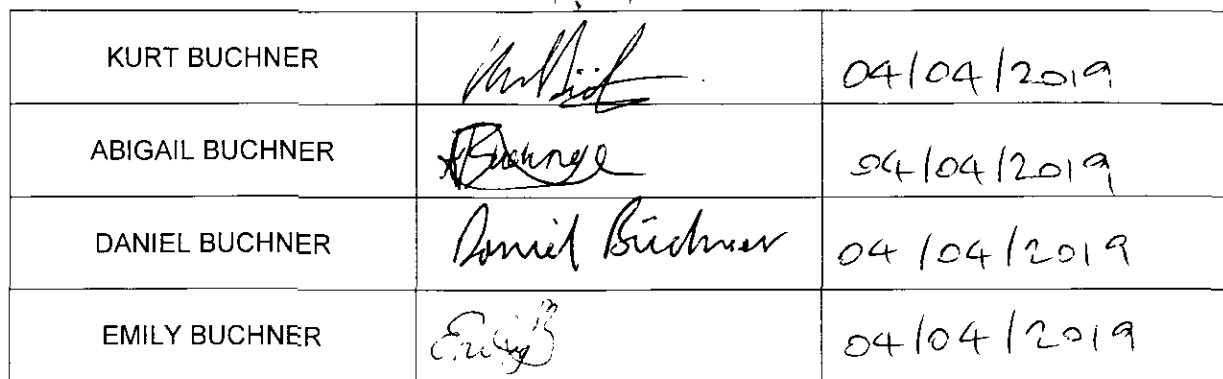 KURT BUCHNER 04/04/2019
ABIGAIL BUCHNER ABuchner 04/04/2019
DANIEL BUCHNER Daniel Büchner 04/04/2019
EMILY BUCHNER EmilyB 04/04/2019